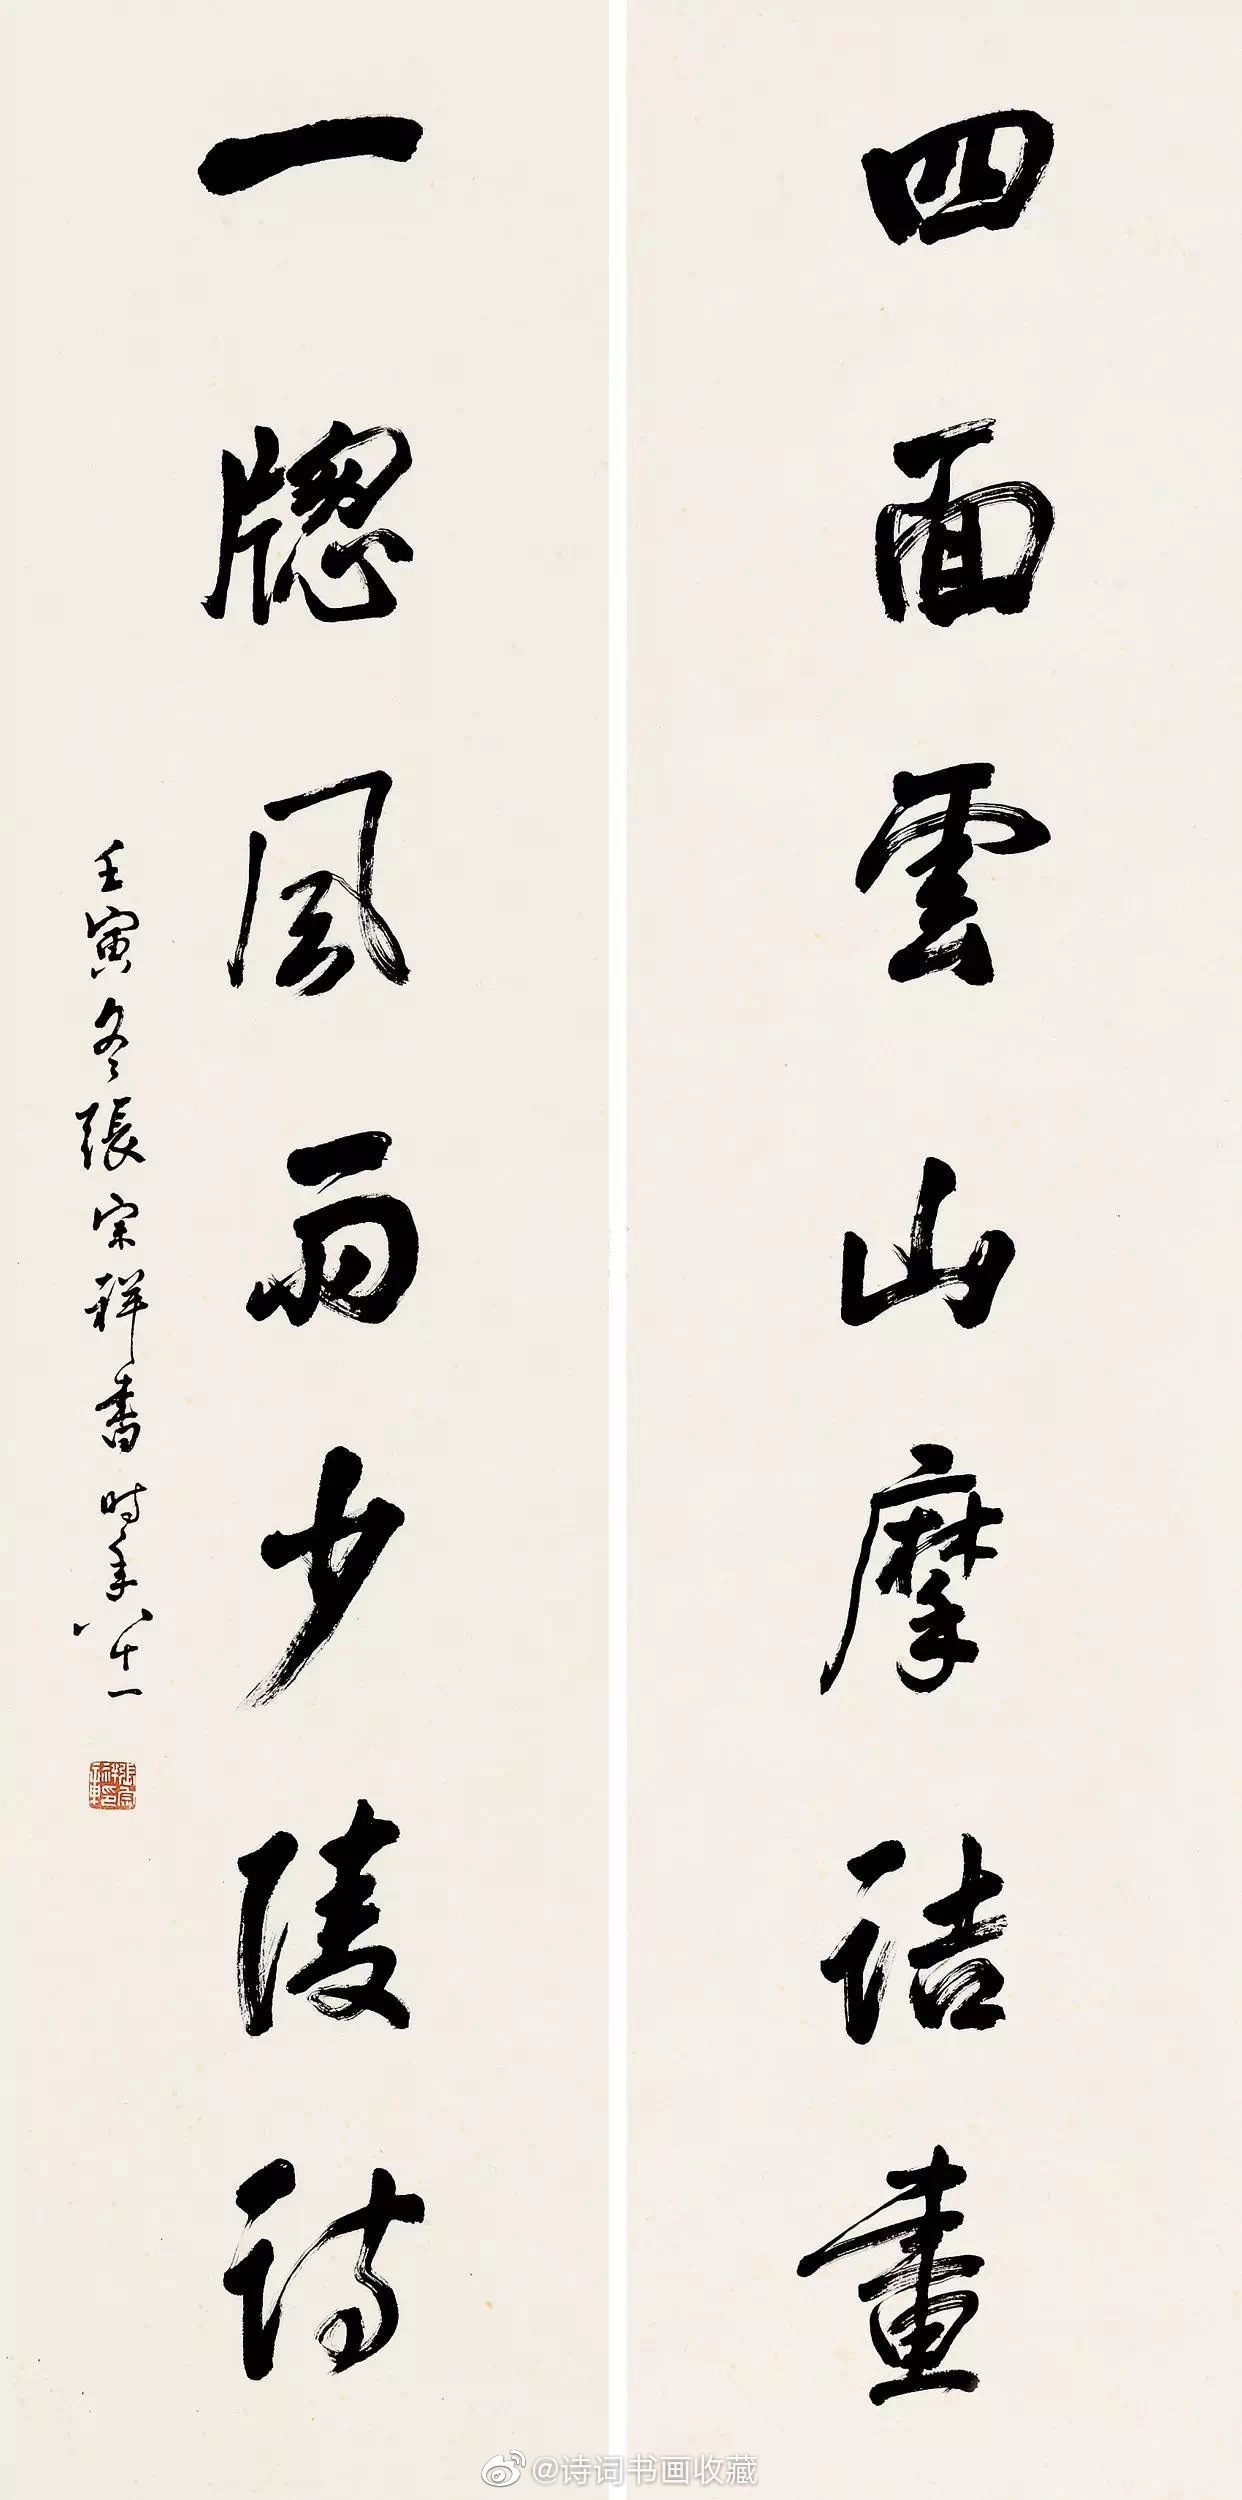 四面雲山摩詰畫
一牕風雨少陵詩
壬寅冬張宗祥書時年八十一
@诗词书画收藏